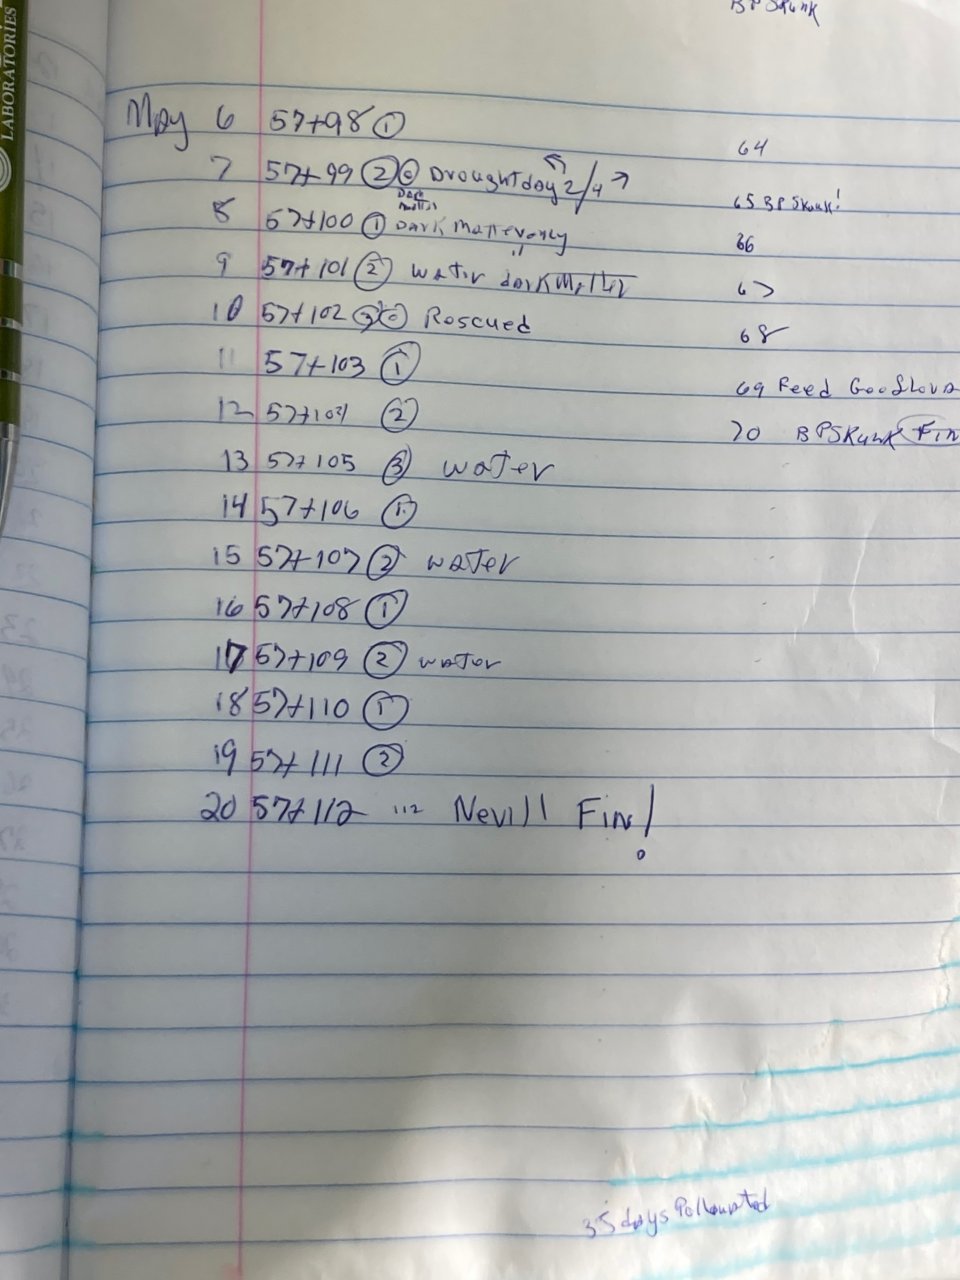 BPSkunk
LABORATORIES
May 6 57+98 ① 64
7 57+99 ② Drought day 2/4 → 65 BPSkunk!
Dark
Matter
8 57+100 ① Dark Matter only 66
9 57+101 ② water dark Matter 67
10 57+102 Rescued 68
11 57+103 ①
12 57+104 ② 69 Feed
13 57+105 ③ water 70 BPSkunk Fin
14 57+106 ①
15 57+107 ② water
16 57+108 ①
17 57+109 ② water
18 57+110 ①
19 57+111 ②
20 57+112 ... 112 Nevill Fin!
35 days Pollenated